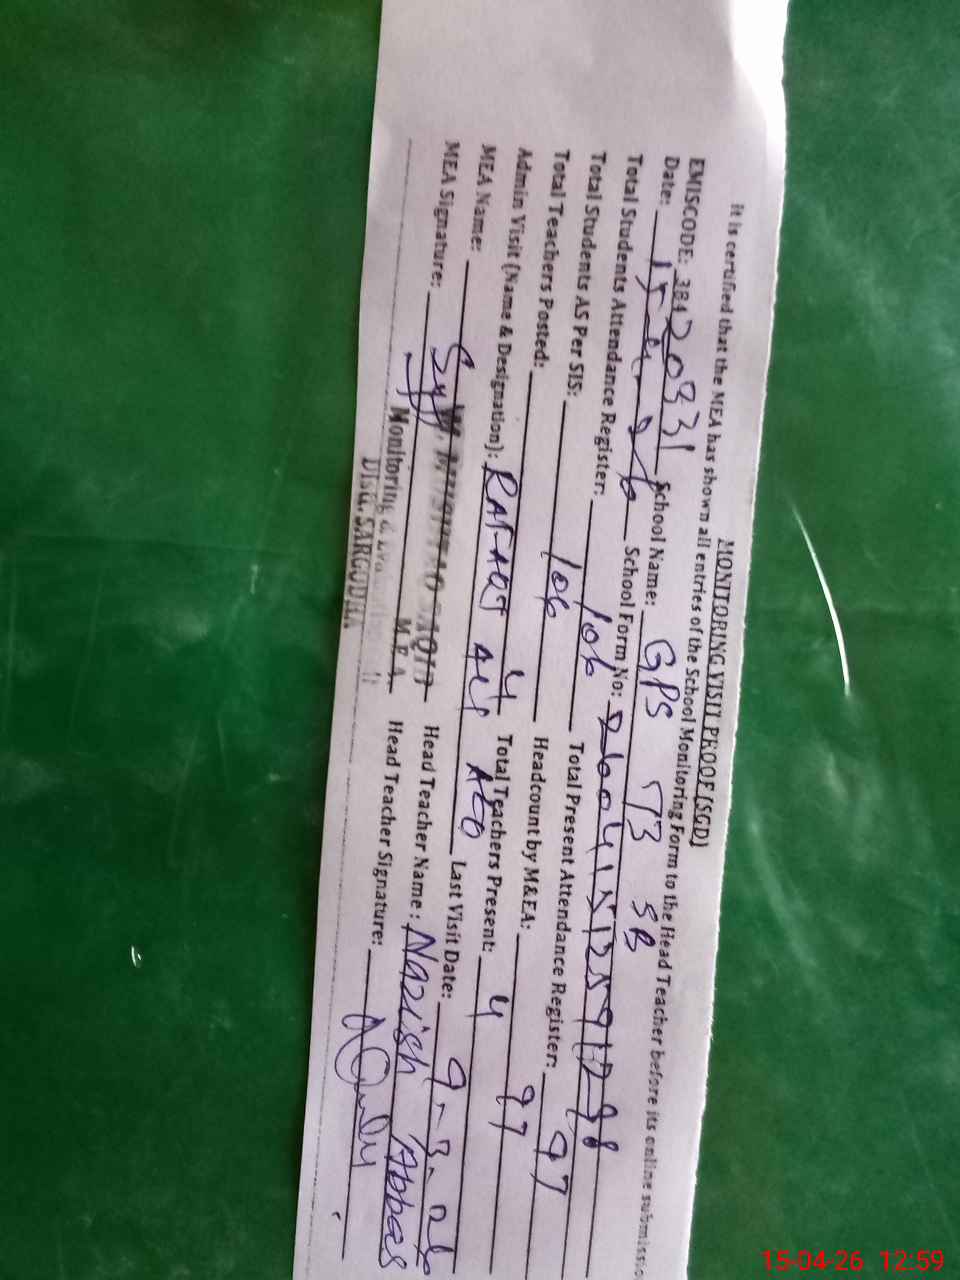 MONITORING VISIT PROOF [SGD]
It is certified that the MEA has shown all entries of the School Monitoring Form to the Head Teacher before its online submissio
EMISCODE: 38420331 School Name: GPS 73 SB
Date: 15-4-26 School Form No:
Total Students Attendance Register: 106 Total Present Attendance Register: 97
Total Students AS Per SIS: 106 Headcount by M&EA: 97
Total Teachers Posted: 4 Total Teachers Present: 4
Admin Visit (Name & Designation): RAFAQT Ali AEO Last Visit Date: 9-3-26
MEA Name: Head Teacher Name: Nazish Abbas
MEA Signature: Head Teacher Signature:
Monitoring & M.E.A
Distt. SARGODHA
15-04-26 12:59